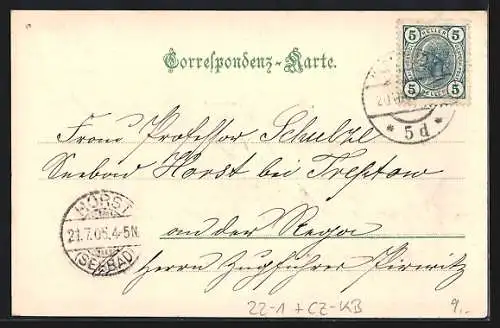 Correspondenz-Karte.
5 HELLER 5
5 5
* 5d *
Frau Professor Schulze
Seebad Horst bei Treptow
an der Rega
Herrn Zugführer
HORST
21.7.05.4-5N.
(SEEBAD)
22-1 + CZ-KB
9.-